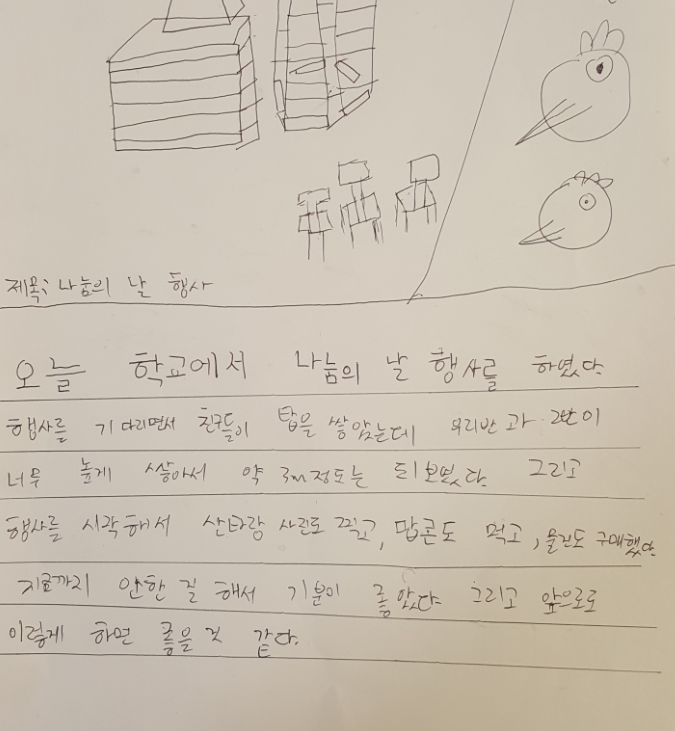 제목: 나눔의 날 행사
오늘 학교에서 나눔의 날 행사를 하였다.
행사를 기다리면서 친구들이 탑을 쌓았는데 우리반과 2반이
너무 높게 쌓아서 약 3m정도는 되보였다. 그리고
행사를 시작해서 산타랑 사진도 찍고, 팝콘도 먹고, 물건도 구매했다.
지금까지 안한 걸 해서 기분이 좋았다. 그리고 앞으로도
이렇게 하면 좋을 것 같다.